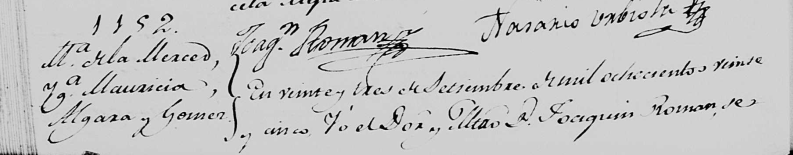 1152.
M.ª de la Merced,
Yg.ª Mauricia,
Algara y Gomez.
Joaq.n Roman
Nasario Urbiola
En veinte y tres de Setiembre de mil ochocientos veinte
y cinco. Yo el Dor. y Mtro. D. Joaquin Roman, se